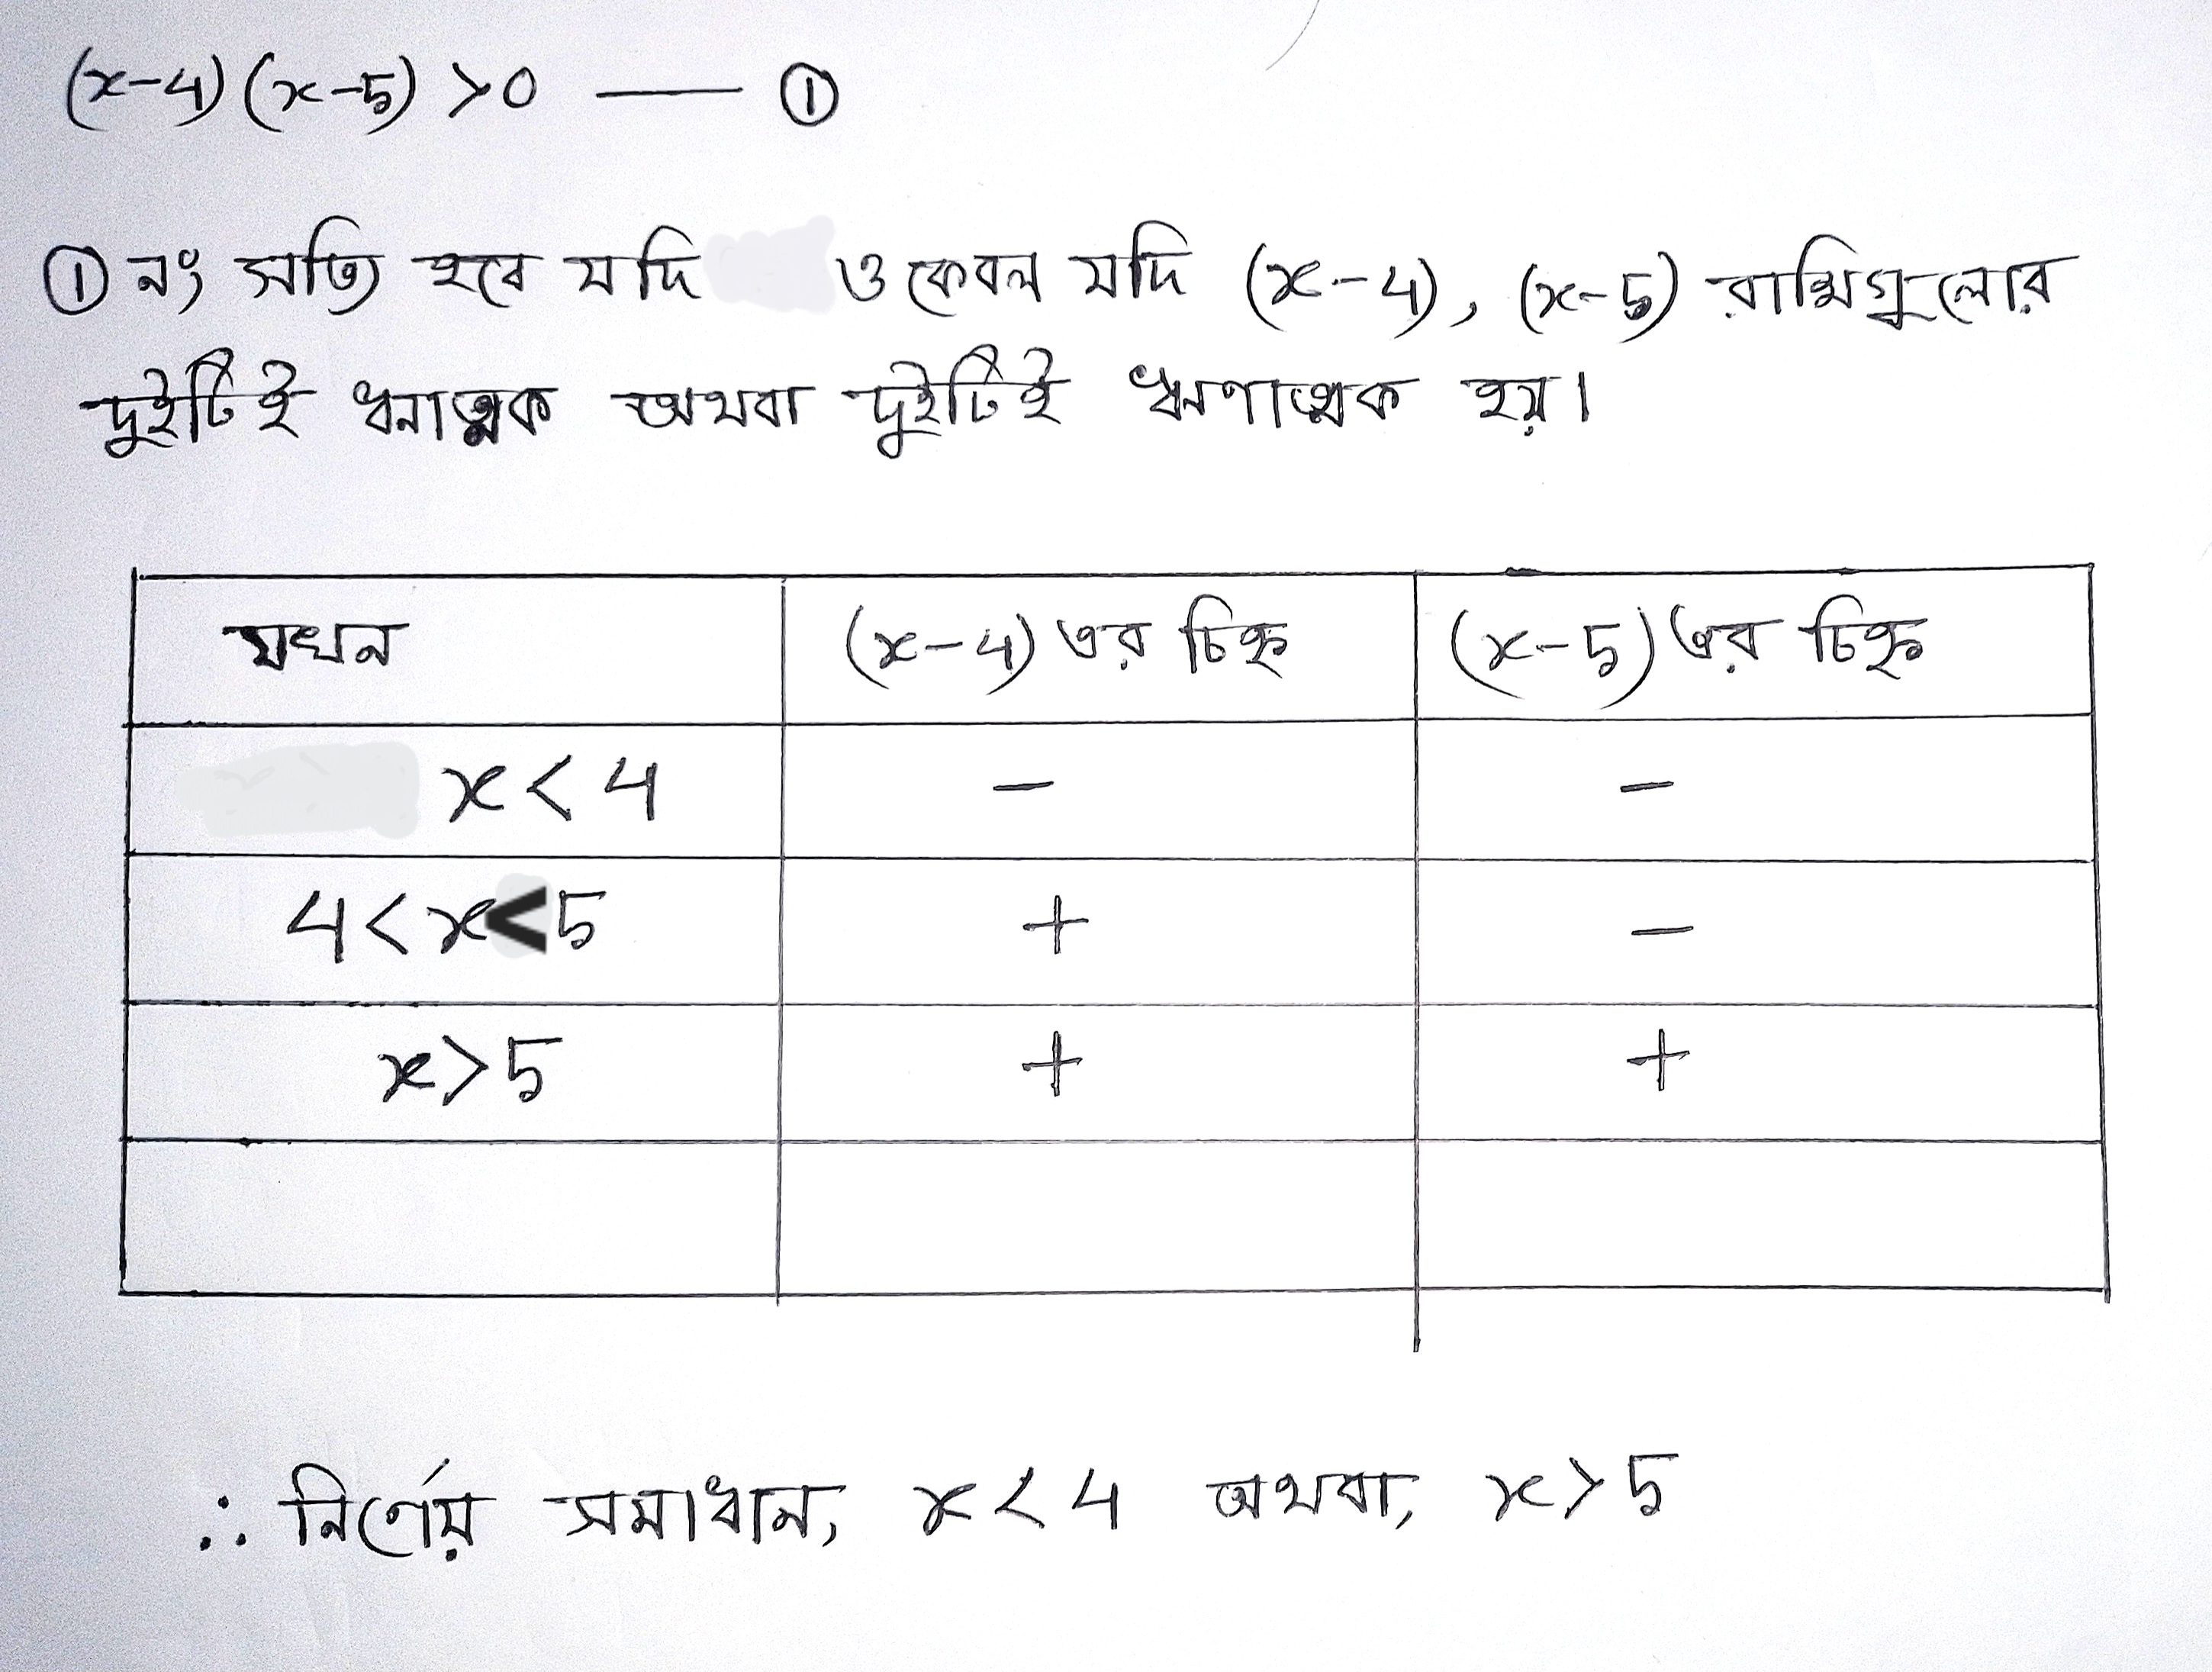 (x-4)(x-5) >0 —— ①
① নং সত্যি হবে যদি ও কেবল যদি (x-4), (x-5) রাশিগুলোর
দুইটিই ধনাত্মক অথবা দুইটিই ঋণাত্মক হয়।
যখন (x-4) এর চিহ্ন (x-5) এর চিহ্ন
x < 4 - -
4 < x < 5 + -
x > 5 + +
∴ নির্ণেয় সমাধান, x < 4 অথবা, x > 5